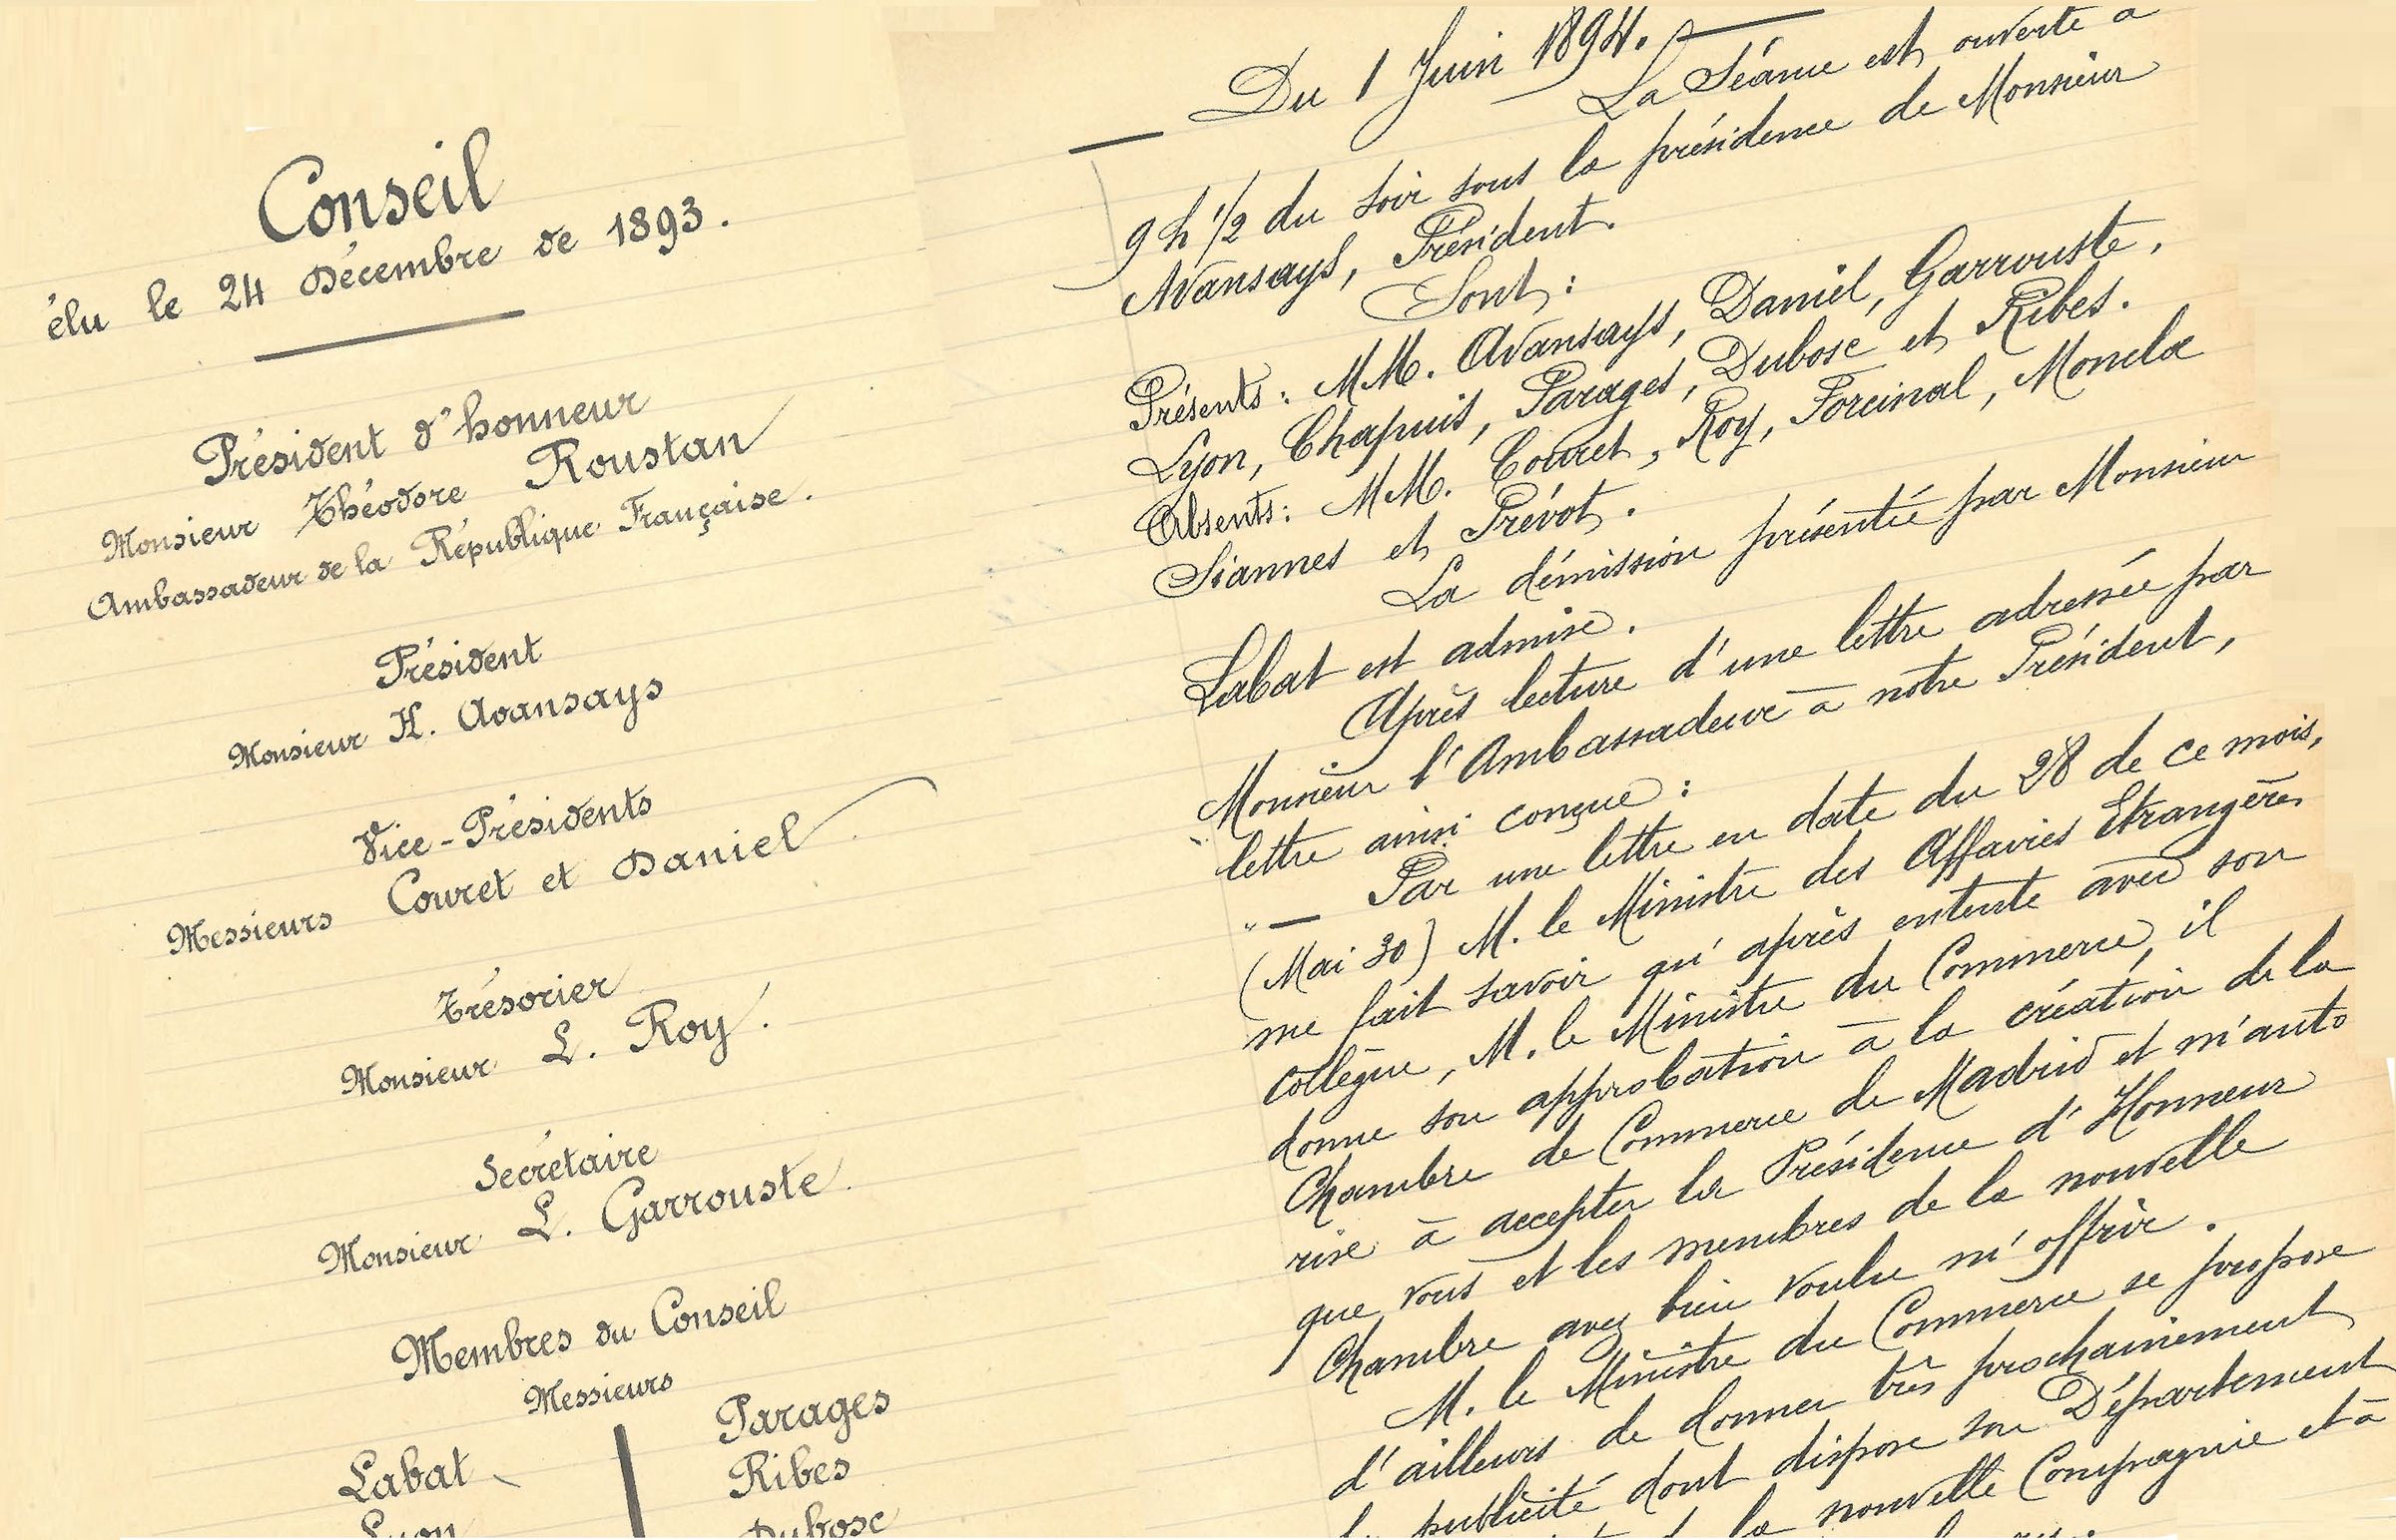 Conseil
élu le 24 Décembre de 1893.
Président d'honneur
Monsieur Théodore Roustan
Ambassadeur de la République Française.
Président
Monsieur H. Avansays
Vice-Présidents
Messieurs Couret et Daniel
Trésorier
Monsieur L. Roy.
Secrétaire
Monsieur L. Garrouste.
Membres du Conseil
Messieurs
Labat
Lyon
Parages
Ribes
Dubosc
Du 1 Juin 1894.
La Séance est ouverte à
9 h 1/2 du soir sous la présidence de Monsieur
Avansays, Président.
Sont :
Présents : MM. Avansays, Daniel, Garrouste,
Lyon, Chapuis, Parages, Dubosc et Ribes.
Absents : MM. Couret, Roy, Forcinal, Moncla
Siannes et Prévot.
La démission présentée par Monsieur
Labat est admise.
Après lecture d'une lettre adressée par
Monsieur l'Ambassadeur à notre Président,
lettre ainsi conçue :
"— Par une lettre en date du 28 de ce mois,
(Mai 30) M. le Ministre des Affaires Etrangères
me fait savoir qu'après entente avec son
collègue, M. le Ministre du Commerce, il
donne son approbation à la création de la
Chambre de Commerce de Madrid et m'auto
rise à accepter la Présidence d'Honneur
que vous et les membres de la nouvelle
Chambre avez bien voulu m'offrir.
M. le Ministre du Commerce se propose
d'ailleurs de donner très prochainement
publicité dont dispose son Département
la nouvelle Compagnie et à